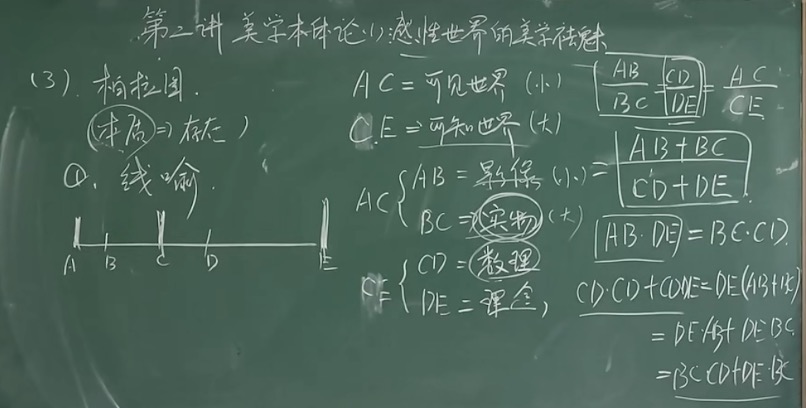 第二讲 美学本体论(1)感性世界的美学祛魅
(3). 柏拉图.
(本质⇒存在)
①. 线喻.
A B C D E
AC = 可见世界 (小)
CE ⇒ 可知世界 (大)
AC { AB = 影像 (小)
BC = 实物 (大)
CE { CD = 数理
DE = 理念,
AB/BC = CD/DE = AC/CE
= AB+BC / CD+DE
AB·DE = BC·CD
CD·CD+CDDE = DE(AB+BC)
= DE·AB+DE BC
= BC·CD+DE·BC